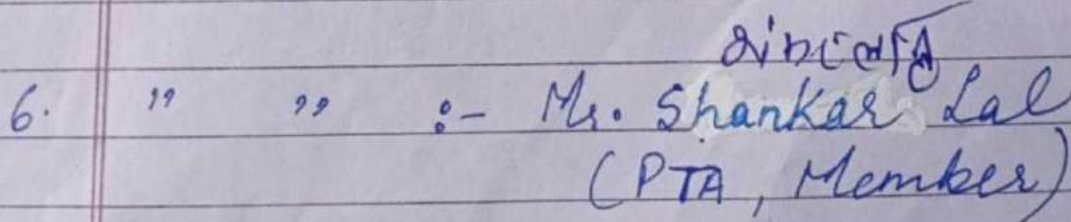 6. " " :- Mr. Shankar Lal
(PTA, Member)